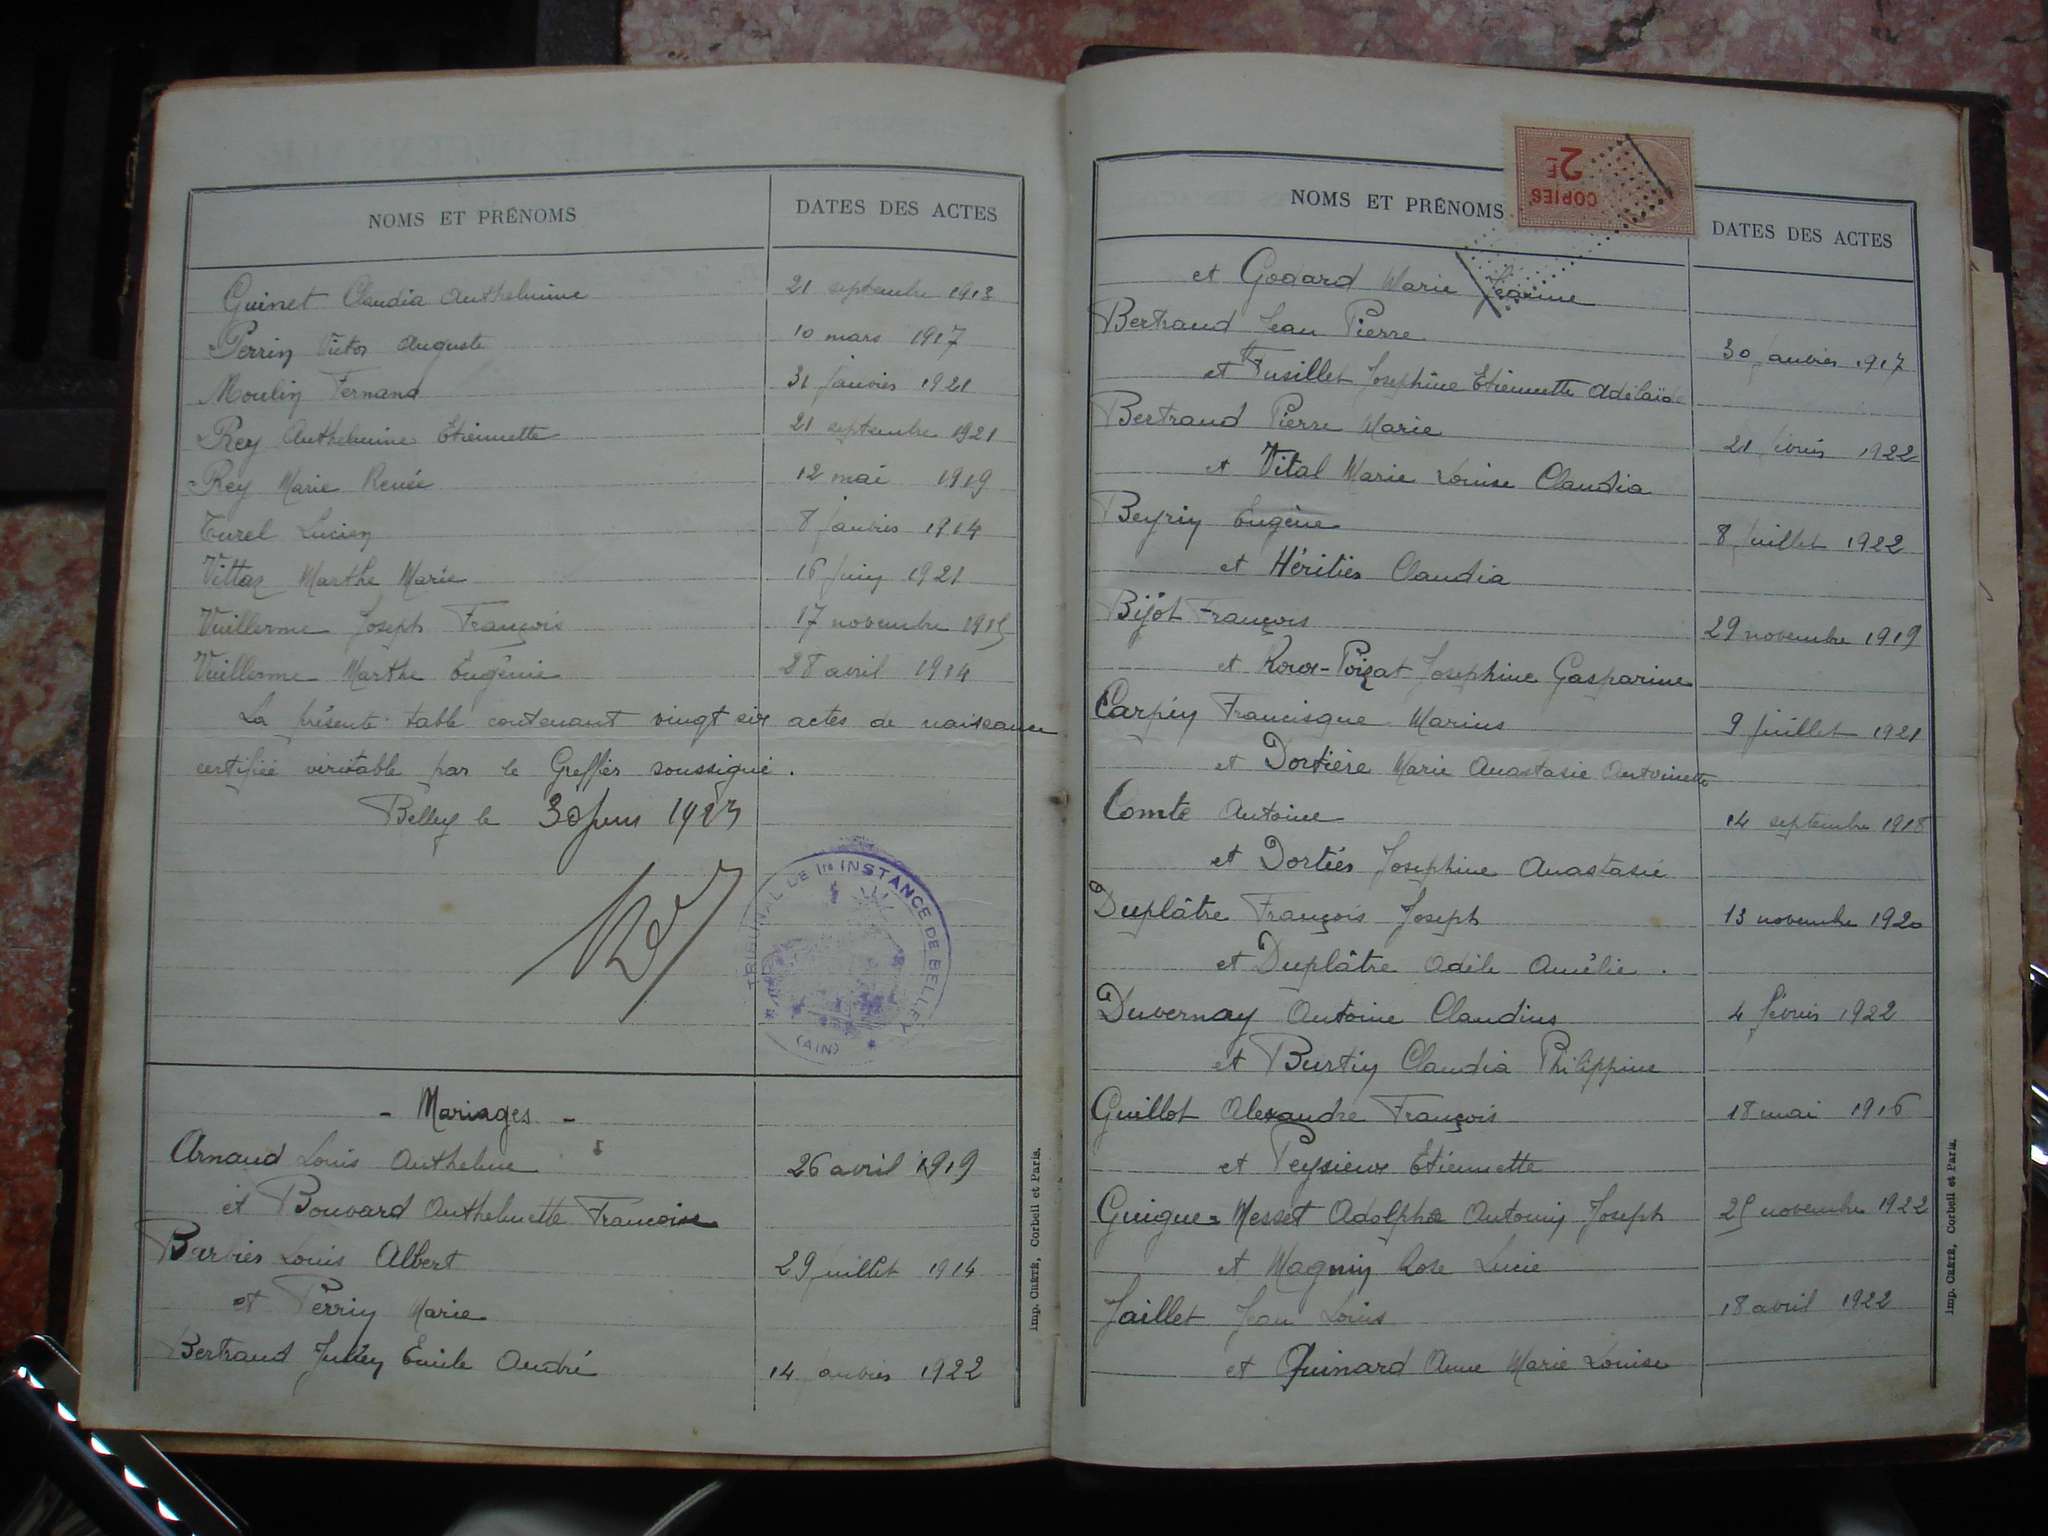 NOMS ET PRÉNOMS DATES DES ACTES
Guinet Claudia Anthelmine 21 septembre 1913
Perrin Victor Auguste 10 mars 1917
Moulin Fernand 31 janvier 1921
Rey Anthelmine Etiennette 21 septembre 1921
Rey Marie Renée 12 mai 1919
Turel Lucien 8 janvier 1914
Vittaz Marthe Marie 16 juin 1921
Vuillerme Joseph François 17 novembre 1915
Vuillerme Marthe Eugénie 28 avril 1914
La présente table contenant vingt six actes de naissance
certifiée véritable par le Greffier soussigné.
Belley le 30 juin 1923
TRIBUNAL DE 1re INSTANCE DE BELLEY
(AIN)
- Mariages -
Arnaud Louis Anthelme 26 avril 1919
et Bouvard Anthelmette Françoise
Barbier Louis Albert 29 juillet 1914
et Perrin Marie
Bertrand Julien Emile André 14 janvier 1922
Imp. CRÉTÉ, Corbeil et Paris.
COPIES
2F
NOMS ET PRÉNOMS DATES DES ACTES
et Godard Marie Jeanne
Bertrand Jean Pierre 30 janvier 1917
et Fusillet Josephine Etiennette Adélaïde
Bertrand Pierre Marie 21 1922
et Vital Marie Louise Claudia
Beyrin Eugène 8 juillet 1922
et Héritier Claudia
Bijot François 29 novembre 1919
et Roux-Poizat Josephine Gasparine
Carpin Francisque Marius 9 juillet 1921
et Dortière Marie Anastasie Antoinette
Comte Antoine 14 septembre 1918
et Dortier Josephine Anastasie
Duplâtre François Joseph 13 novembre 1920
et Duplâtre Adèle Amélie.
Duvernay Antoine Claudius 4 février 1922
et Burtin Claudia Philippine
Guillot Alexandre François 18 mai 1916
et Peysieux Etiennette
Guigue-Messet Adolphe Antonin Joseph 25 novembre 1922
et Magnin Rose Lucie
Jaillet Jean Louis 18 avril 1922
et Quinard Anne Marie Louise
Imp. CRÉTÉ, Corbeil et Paris.